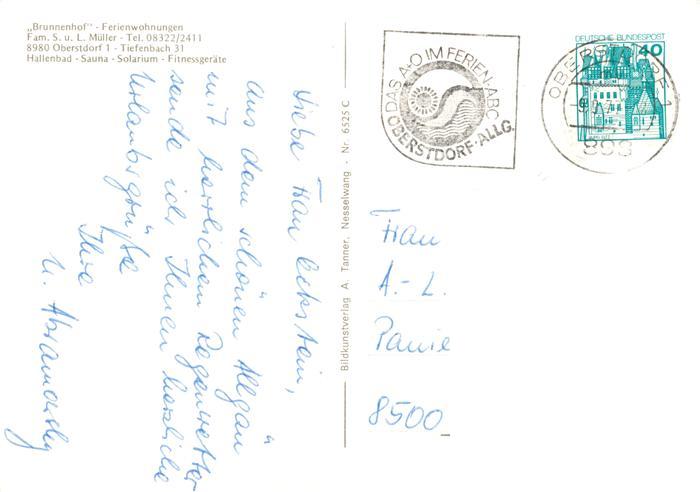 „Brunnenhof" - Ferienwohnungen
Fam. S. u. L. Müller - Tel. 08322/2411
8980 Oberstdorf 1 - Tiefenbach 31
Hallenbad - Sauna - Solarium - Fitnessgeräte
Liebe Frau Eckstein,
Aus dem schönen Allgäu
mit herrlichem Regenwetter
sende ich Ihnen herzliche
Urlaubsgrüße
Ihre
Bildkunstverlag A. Tanner, Nesselwang - Nr. 6525 C
DAS A-O IM FERIEN-ABC
OBERSTDORF·ALLG.
DEUTSCHE BUNDESPOST
40
OBERSTDORF 1
Frau
A.-L.
8500